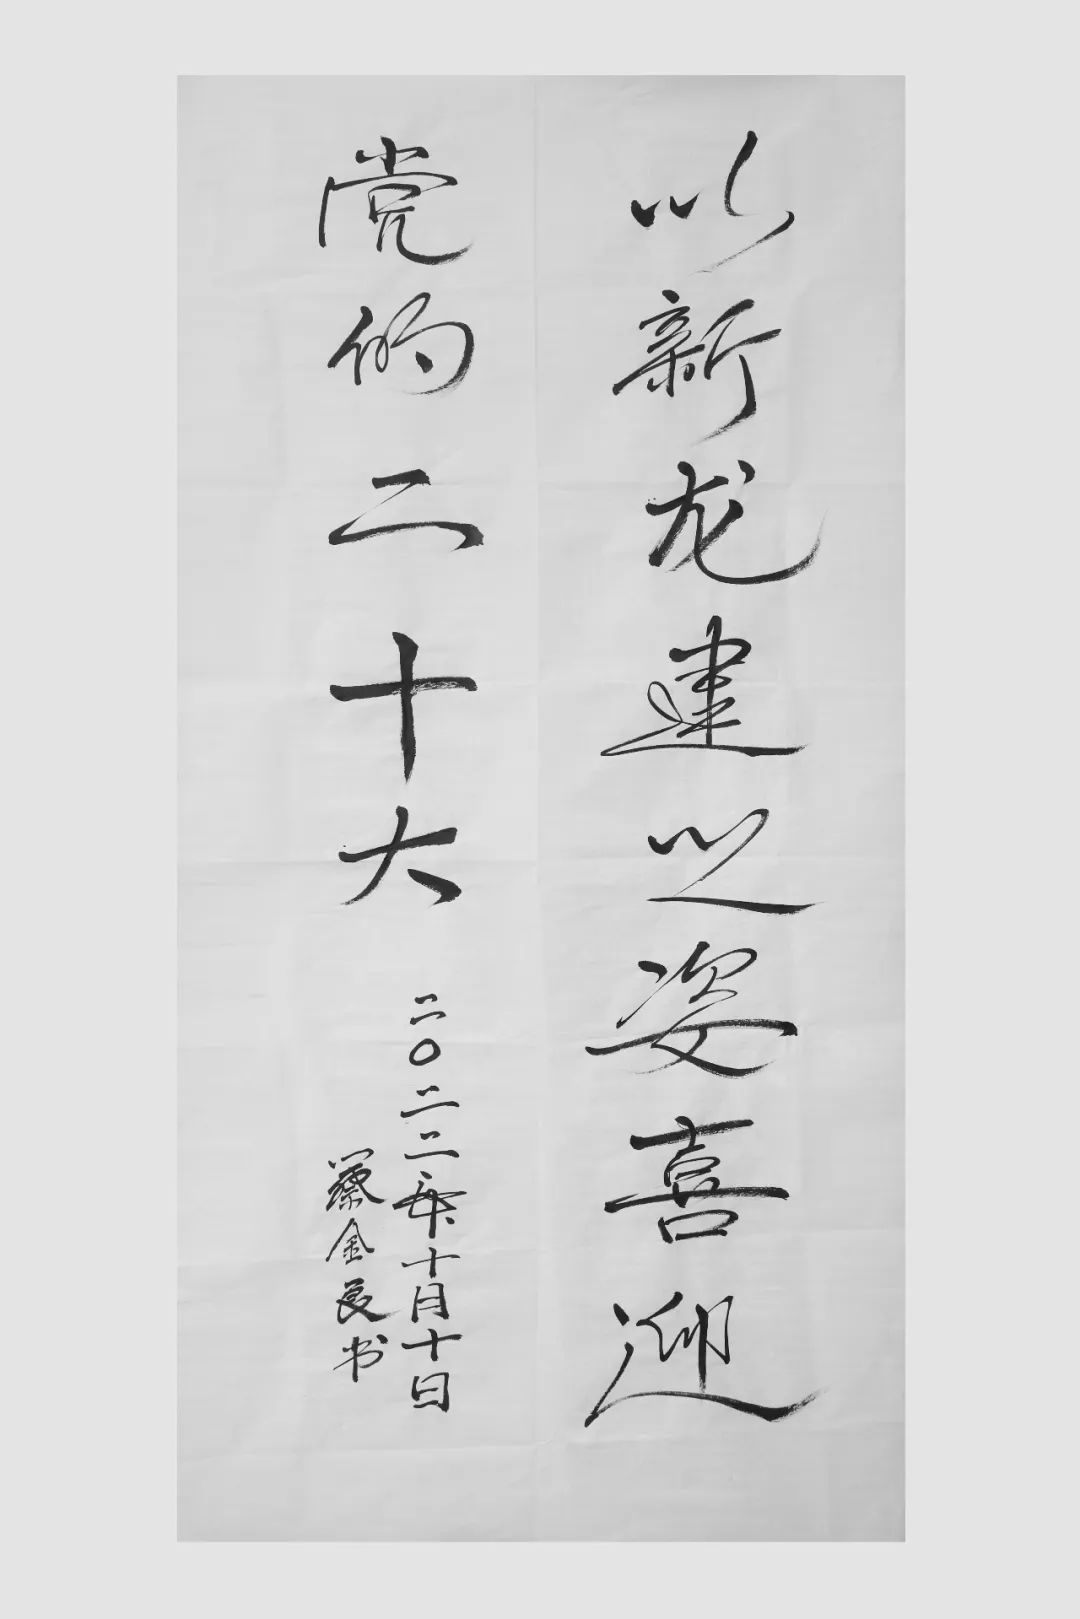 以新龙建之姿喜迎
党的二十大
二〇二二年十月十日
蔡金良书